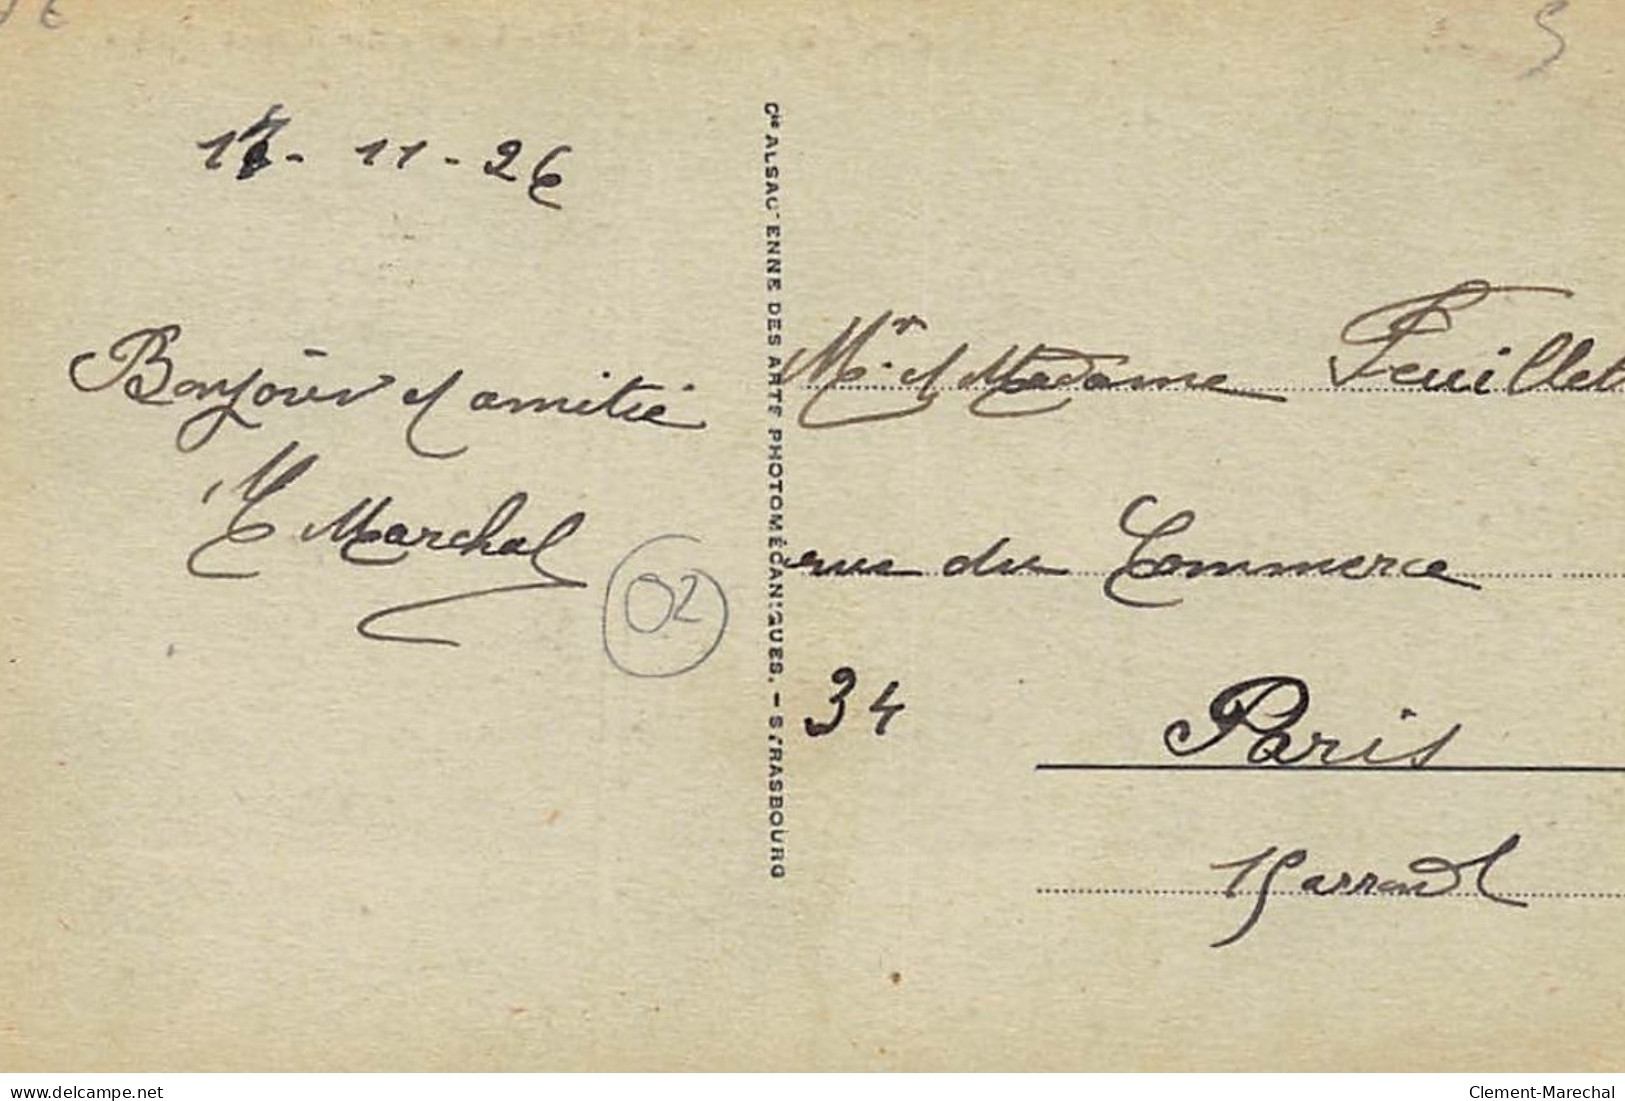 - 11 - 26
Bonjour et amitié
Marchal
02
Cie ALSACIENNE DES ARTS PHOTOMÉCANIQUES. — STRASBOURG
Mr et Madame Feuillet
rue du Commerce
34
Paris
15 arrond
5
delcampe.net
Clement-Marechal